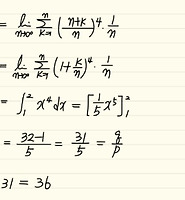 = lim n→∞ Σ k=1 n ((n+k)/n)^4 · 1/n
= lim n→∞ Σ k=1 n (1+k/n)^4 · 1/n
= ∫_1^2 x^4 dx = [1/5 x^5]_1^2
= (32-1)/5 = 31/5 = q/p
31 = 36